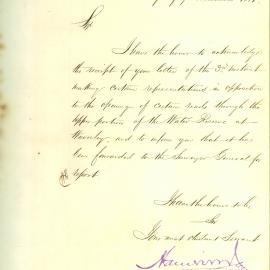 Sir
I have the honor to acknowledge
the receipt of your letter of the 3rd instant
making certain representations in opposition
to the opening of certain roads through the
upper portion of the Water Reserve at
Waverley, and to inform you that it has
been forwarded to the Surveyor General for
report
I have the honor to be
Sir
Your most obedient Servant